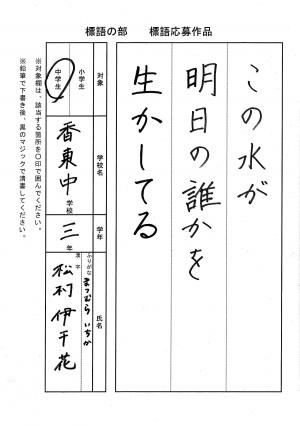 標語の部　標語応募作品
この水が
明日の誰かを
生かしてる
対象
小学生
中学生
学校名
香東中学校
学年
三年
氏名
ふりがな
まつむら いちか
漢字
松村 伊千花
※対象欄は、該当する箇所を〇印で囲んでください。
※鉛筆で下書き後、黒のマジックで清書してください。